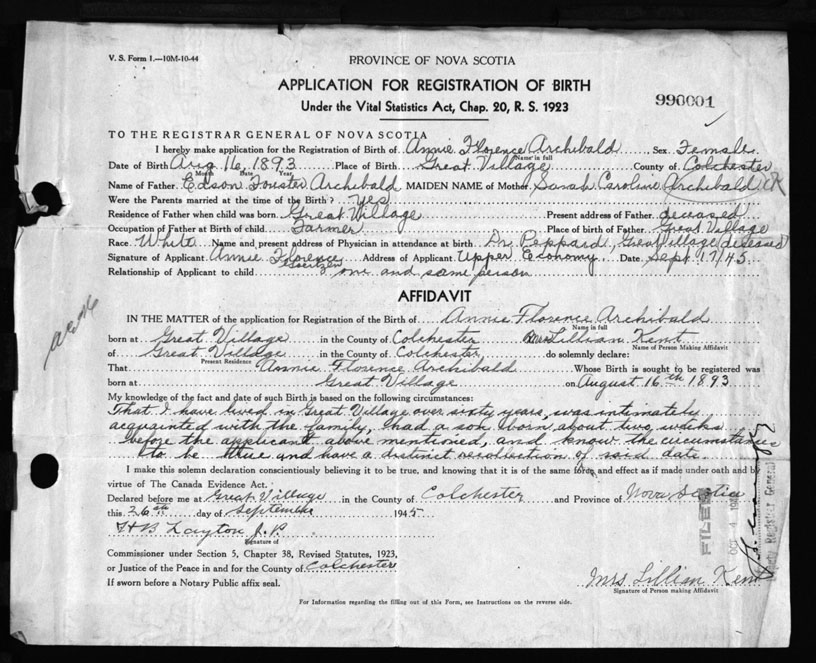 V. S. Form 1.—10M-10-44
PROVINCE OF NOVA SCOTIA
APPLICATION FOR REGISTRATION OF BIRTH
Under the Vital Statistics Act, Chap. 20, R. S. 1923
990001
TO THE REGISTRAR GENERAL OF NOVA SCOTIA
I hereby make application for the Registration of Birth of Annie Florence Archibald, Sex Female
Name in full
Date of Birth Aug 16, 1893 Place of Birth Great Village County of Colchester
Month Date Year
Name of Father Edson Foster Archibald MAIDEN NAME of Mother Sarah Caroline Archibald
Were the Parents married at time of birth? yes
Residence of Father when child was born Great Village Present address of Father deceased
Occupation of Father at Birth of child Farmer Place of birth of Father Great Village
Race White Name and present address of Physician in attendance at birth Dr Peppard, Great Village (deceased)
Signature of Applicant Annie Florence Address of Applicant Upper Economy, Date Sept 17/45
Relationship of Applicant to child one and same person
AFFIDAVIT
IN THE MATTER of the application for Registration of the Birth of Annie Florence Archibald
Name in full
born at Great Village in the County of Colchester Mrs Lillian Kent
Name of Person Making Affidavit
of Great Village in the County of Colchester, do solemnly declare:
Present Residence
That Annie Florence Archibald Whose Birth is sought to be registered was
born at Great Village on August 16th 1893
My knowledge of the fact and date of such Birth is based on the following circumstances:
That I have lived in Great Village over sixty years, was intimately
acquainted with the family, had a son born about two weeks
before the applicant above mentioned, and know the circumstances
to be true and have a distinct recollection of said date.
I make this solemn declaration conscientiously believing it to be true, and knowing that it is of the same force and effect as if made under oath and by
virtue of The Canada Evidence Act.
Declared before me at Great Village in the County of Colchester and Province of Nova Scotia
this 26th day of September 1945
H B Layton J.P.
Signature of
Commissioner under Section 5, Chapter 38, Revised Statutes, 1923,
or Justice of the Peace in and for the County of Colchester
If sworn before a Notary Public affix seal.
FILED
OCT 4
Deputy Registrar General
Mrs Lillian Kent
Signature of Person making Affidavit
For Information regarding the filling out of this Form, see Instructions on the reverse side.